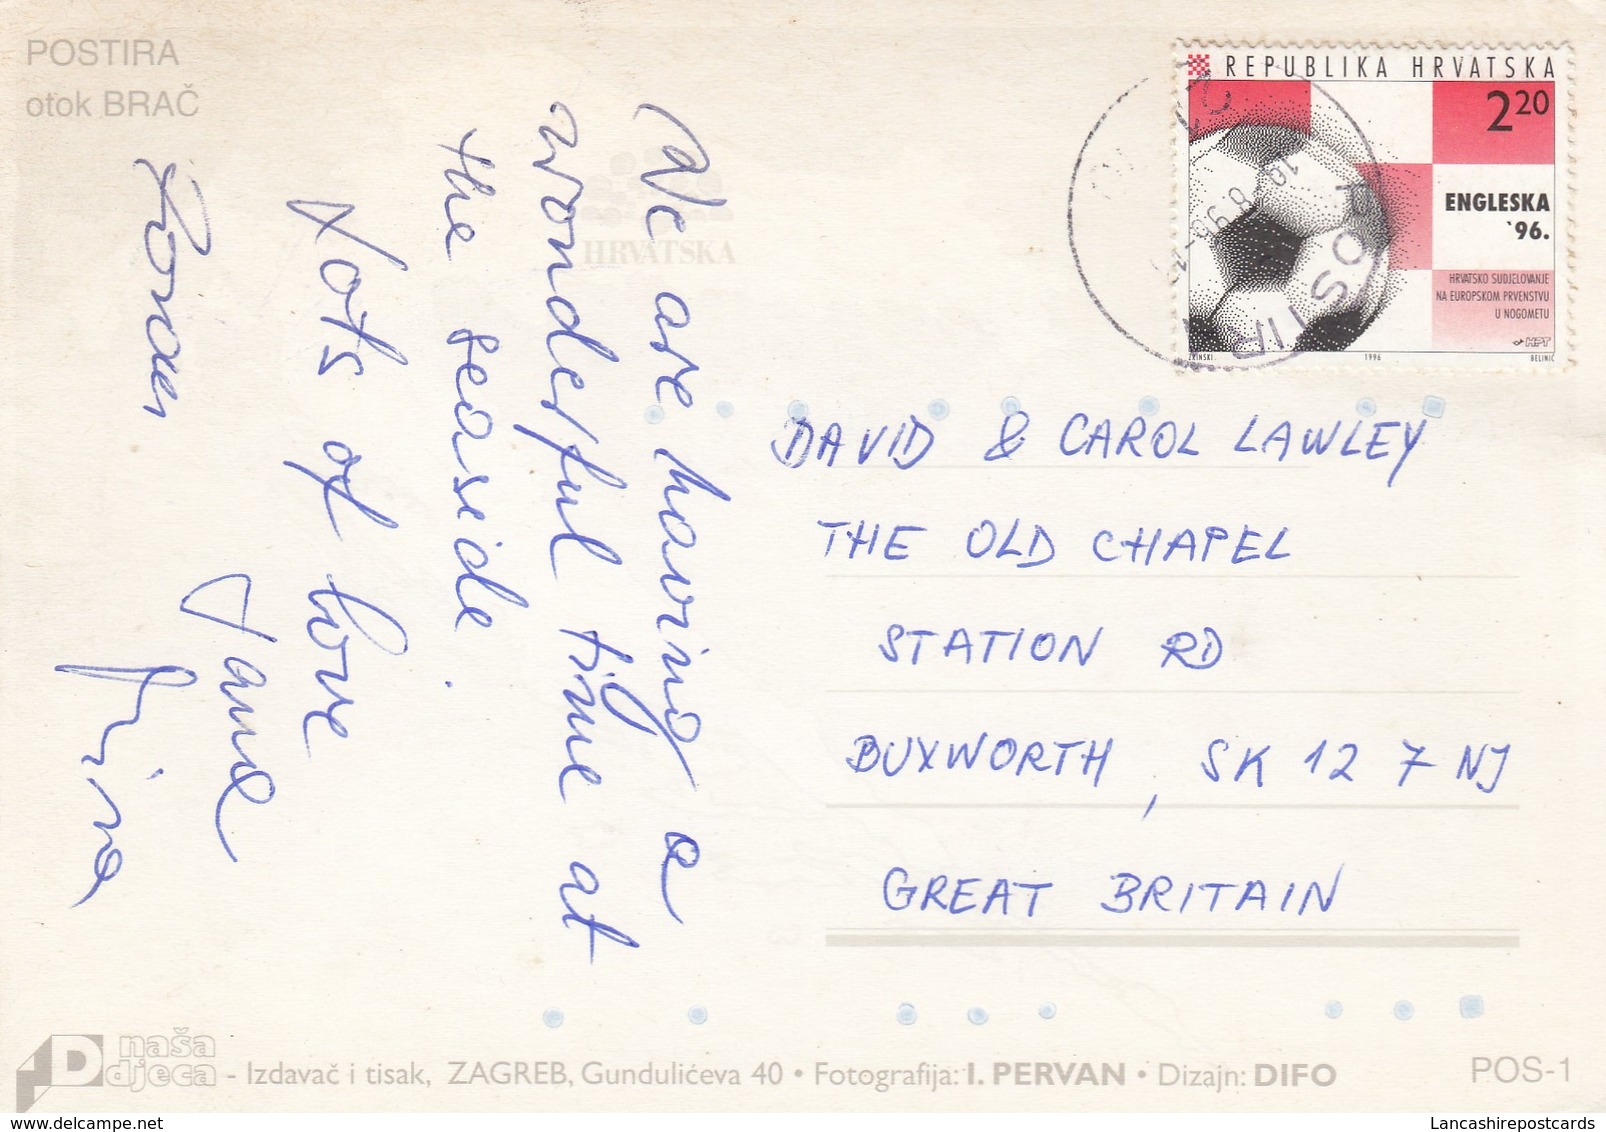 POSTIRA
otok BRAČ
We are having a
wonderful time at
the seaside.
Lots of love
HRVATSKA
REPUBLIKA HRVATSKA
2 20
ENGLESKA
'96.
HRVATSKO SUDJELOVANJE
NA EUROPSKOM PRVENSTVU
U NOGOMETU
HPT
ZRINSKI
1996
BELINIĆ
DAVID & CAROL LAWLEY
THE OLD CHAPEL
STATION RD
BUXWORTH, SK 12 7 NJ
GREAT BRITAIN
naša
djeca - Izdavač i tisak, ZAGREB, Gundulićeva 40 • Fotografija: I. PERVAN • Dizajn: DIFO
POS-1
Lancashirepostcards